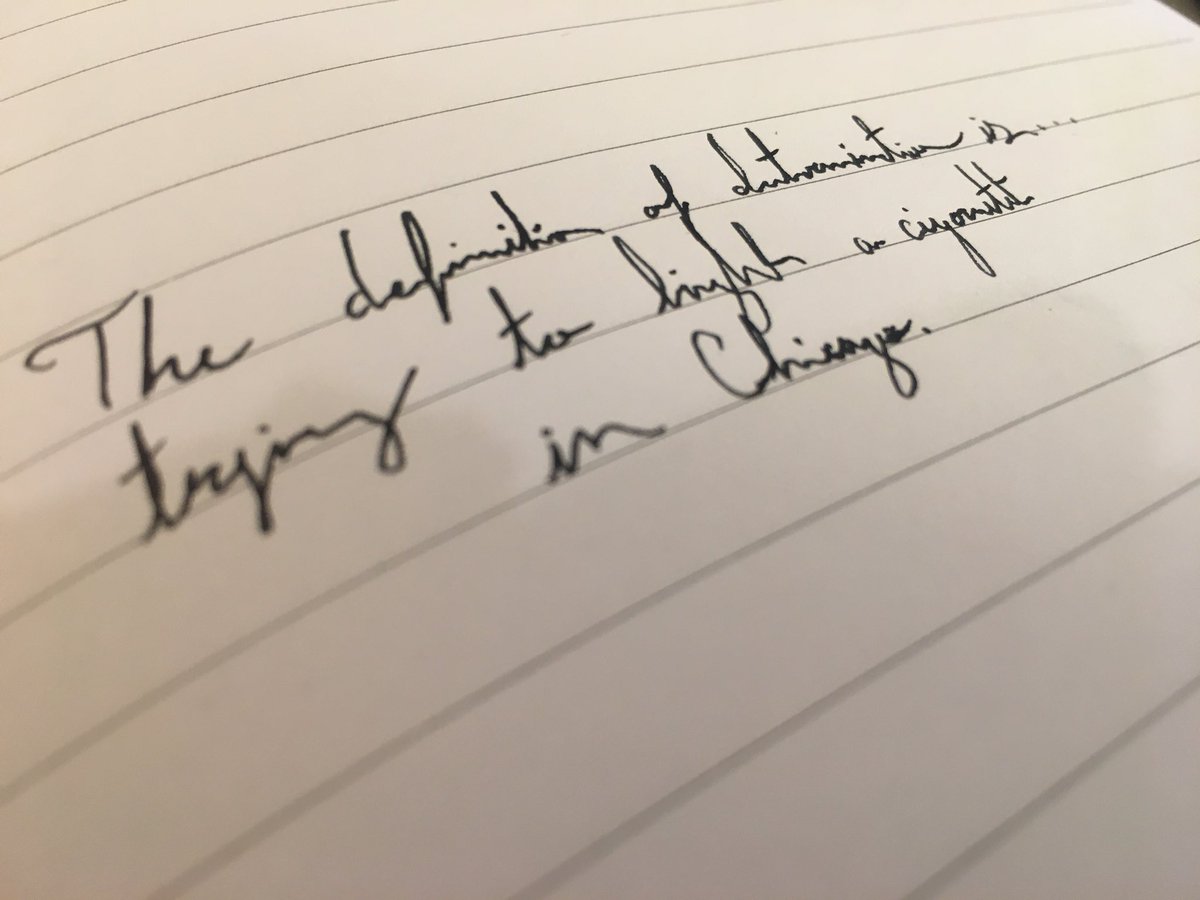 The definition of determination is....
trying to light a cigarette
in Chicago.